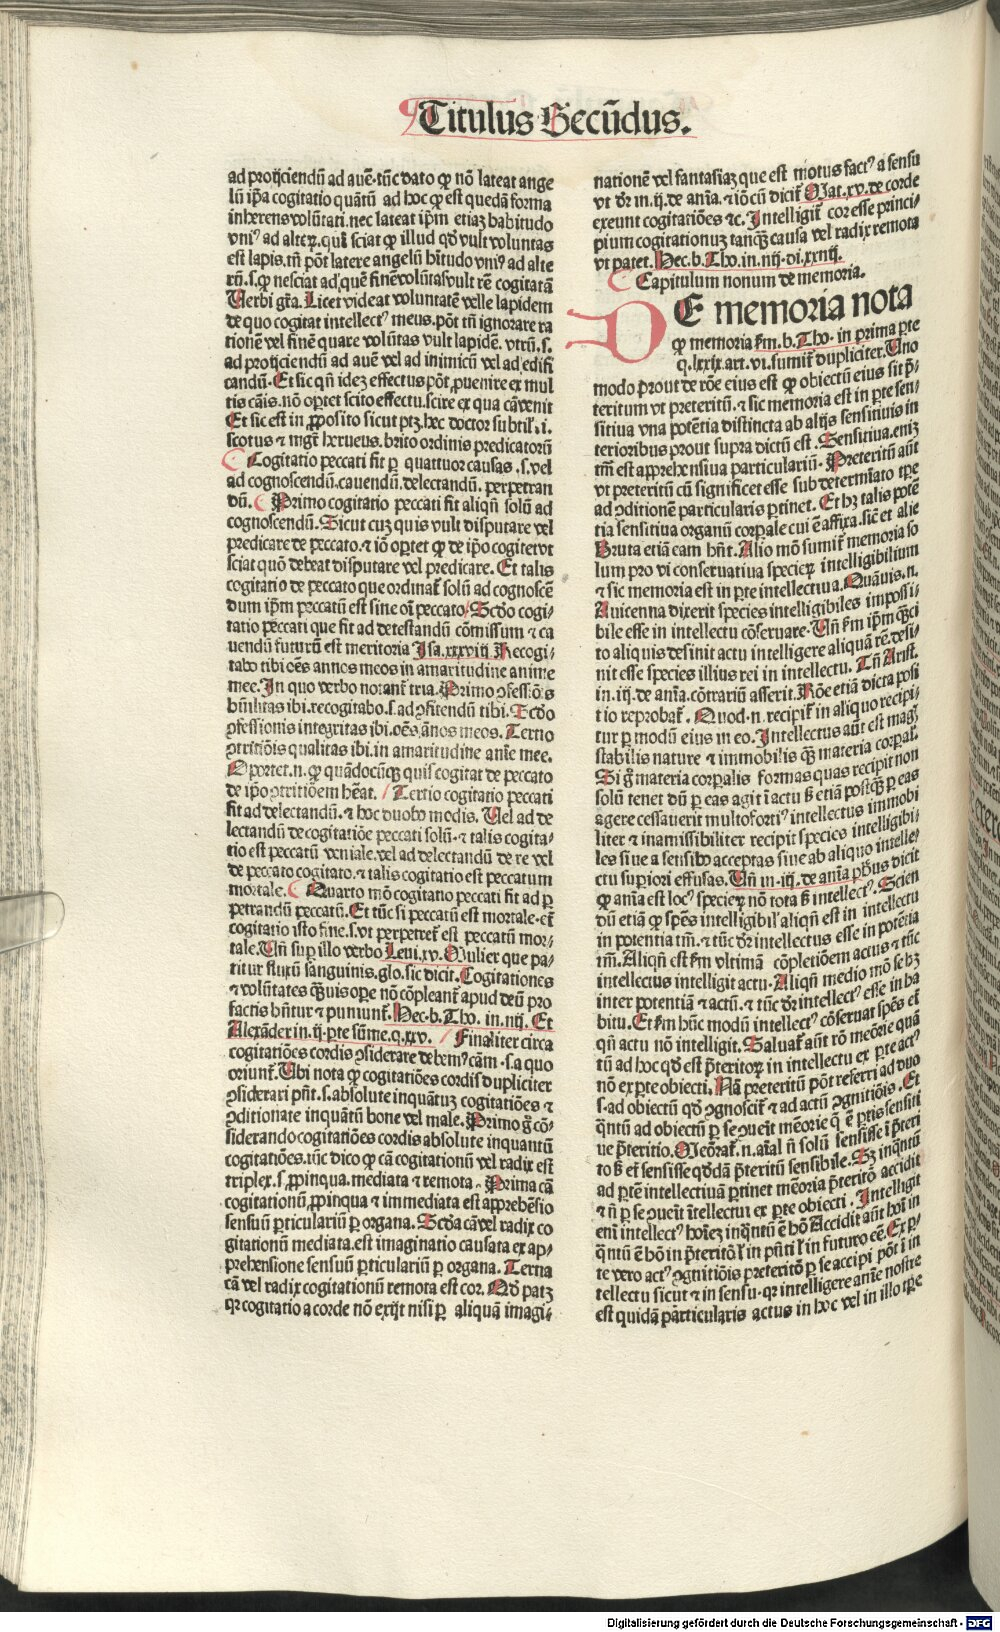 Titulus Secūdus.
ad proijciendū ad auē. tūc dato ꝙ nō lateat ange
lū ip̄a cogitatio quātū ad hoc ꝙ est quedā forma
inherens volūtati. nec lateat ip̄m etiaȝ habitudo
vniꝰ ad alteꝝ. qui sciat ꝙ illud qd̄ vult voluntas
est lapis. tn̄ pōt latere angelū hr̄tudo vniꝰ ad alte
rū .s. ꝙ nesciat ad que finē volūtas vult rē cogitatā
Uerbi gr̄a. Licet videat voluntatē velle lapidem
de quo cogitat intellectꝰ meus. pōt tn̄ ignorare ra
tionē vel finē quare volūtas vult lapidē. vtrū .s.
ad proijciendū ad auē vel ad inimicū vel ad edifi
candū. Et sic qn̄ ideȝ effectus pōt ꝓuenire ex mul
tis cāis. nō oꝑtet scito effectu. scire ex qua cā venit
Et sic est in ꝓposito sicut ptȝ. hec doctor subtil̓ .i.
scotus ⁊ mgr̄ herueus. brito ordinis predicatorū
Cogitatio peccati fit ꝑ quattuor causas .s. vel
ad cognoscendū. cauendū. delectandū. perpetran
dū. Primo cogitatio peccati fit aliqn̄ solū ad
cognoscendū. Sicut cuȝ quis vult disputare vel
predicare de peccato. ⁊ iō oꝑtet ꝙ de ip̄o cogitet vt
sciat quō debeat disputare vel predicare. Et talis
cogitatio de peccato que ordinat̄ solū ad cognoscē
dum ip̄m peccatū est sine oī peccato. Scd̄o cogi⸗
tatio peccati que fit ad detestandū cōmissum ⁊ ca
uendū futurū est meritoria Isa.xxxviij. Recogi⸗
tabo tibi oēs annos meos in amaritudine anime
mee. In quo verbo notant̄ tria. Primo ꝯfessiōis
hūilitas ibi. recogitabo .s. ad ꝯfitendū tibi. Scd̄o
ꝯfessionis integritas ibi. oēs ānos meos. Tertio
ꝯtritiōis qualitas ibi. in amaritudine anīe mee.
Oportet .n. ꝙ quādocūqȝ quis cogitat de peccato
de ip̄o ꝯtritiōem hēat. Tertio cogitatio peccati
fit ad delectandū. ⁊ hoc duobꝰ modis. Uel ad de
lectandū de cogitatiōe peccati solū. ⁊ talis cogita⸗
tio est peccatū veniale. vel ad delectandū de re vel
de peccato cogitato. ⁊ talis cogitatio est peccatum
mortale. Quarto mō cogitatio peccati fit ad ꝑ
petrandū peccatū. Et tūc si peccatū est mortale. et̄
cogitatio isto fine .s. vt perpetret̄ est peccatū mor⸗
tale. Un̄ suꝑ illo verbo Leui.xv. Mulier que pa⸗
titur fluxū sanguinis. glo. sic dicit. Cogitationes
⁊ volūtates qȝuis oꝑe nō cōpleant̄ apud deū pro
factis hn̄tur ⁊ puniunt̄. Hec.b.Tho. in.iiij. Et
Alexāder in.ij. ꝑte sūme.q.xxv. Finaliter circa
cogitatiōes cordis ꝯsiderate debemꝰ cām .s. a quo
oriunt̄. Ubi nota ꝙ cogitatiōes cordis dupliciter
ꝯsiderari pn̄t .s. absolute inquātuȝ cogitatiōes ⁊
ꝯditionate inquātū bone vel male. Primo g̊ cō⸗
siderando cogitatiōes cordis absolute inquantū
cogitatiōes. tūc dico ꝙ cā cogitationū vel radix est
triplex .s. ꝓpinqua. mediata ⁊ remota. Prima cā
cogitationū ꝓpinqua ⁊ immediata est apprehēsio
sensuū ꝑticulariū ꝑ organa. Scd̄a cā vel radix co
gitationū mediata. est imaginatio causata ex ap⸗
prehensione sensuū ꝑticulariū ꝑ organa. Tertia
cā vel radix cogitationū remota est cor. Qd̄ patȝ
qꝛ cogitatio a corde nō exijt nisi ꝑ aliquā imagi⸗
nationē vel fantasiaȝ que est motus factꝰ a sensu
vt dr̄ in.ij. de anīa. ⁊ iō cū dicit̄ Mat.xv. de corde
exeunt cogitatiōes ⁊c. Intelligit̄ cor esse princi⸗
pium cogitationuȝ tanqȝ causa vel radix remota
vt patet. Hec.b.Tho. in.iiij.di.xxiij.
Capitulum nonum de memoria.
DE memoria nota
ꝙ memoria ẜm.b.Tho. in prima ꝑte
q.lxxix.art.vi. sumit̄ dupliciter. Uno
modo prout de rōe eius est ꝙ obiectū eius sit p̄⸗
teritum vt preteritū. ⁊ sic memoria est in ꝑte sen⸗
sitiua vna potētia distincta ab alijs sensitiuis in
terioribus prout supra dictū est. Sensitiua .eniȝ
tm̄ est apprehensiua particulariū. Preteritū aūt
vt preteritū cū significet esse sub determīato tꝑe
ad ꝯditionē particularis ꝑtinet. Et hȝ talis potē
tia sensitiua organū corꝑale cui ē affixa. sic̄ et alie
Bruta etiā eam hn̄t. Alio mō sumit̄ memoria so
lum pro vi conseruatiua specieꝝ intelligibilium
⁊ sic memoria est in ꝑte intellectiua. Quāuis .n.
Auicenna dixerit species intelligibiles impossi⸗
bile esse in intellectu cōseruare. Un̄ ẜm ip̄m qȝci
to aliquis desinit actu intelligere aliquā rē. desi⸗
nit esse species illius rei in intellectu. Tn̄ Arist.
in.iij. de anīa. cōtrariū asserit. Rōe etiā dicta posi
tio reprobat̄. Quod .n. recipit̄ in aliquo recipi⸗
tur ꝑ modū eius in eo. Intellectus aūt est magꝭ
stabilis nature ⁊ immobilis qȝ materia corꝑal̓.
Si g̊ materia corꝑalis formas quas recipit non
solū tenet dū ꝑ eas agit ī actu ẜ etiā postqȝ ꝑ eas
agere cessauerit multofortiꝰ intellectus immobi
liter ⁊ inamissibiliter recipit species intelligibi⸗
les siue a sensibꝰ acceptas siue ab aliquo intelle⸗
ctu suꝑiori effusas. Un̄ in.iij. de anīa ph̄us dicit
ꝙ anīa est locꝰ specieꝝ nō tota ẜ intellectꝰ. Scien
dū etiā ꝙ spēs intelligibil̓ aliqn̄ est in intellectu
in potentia tm̄. ⁊ tūc dr̄ intellectus esse in potētia
tm̄. Aliqn̄ est ẜm vltimā cōpletiōem actus ⁊ tūc
intellectus intelligit actu. Aliqn̄ medio mō se hȝ
inter potentiā ⁊ actū. ⁊ tūc dr̄ intellectꝰ esse in ha
bitu. Et ẜm hūc modū intellectꝰ cōseruat spēs et̄
qn̄ actu nō intelligit. Saluat̄ aūt rō meōrie quā
tū ad hoc qd̄ est p̄teritoꝝ in intellectu ex ꝑte actꝰ
nō ex ꝑte obiecti. Nā preteritū pōt referri ad duo
.s. ad obiectū qd̄ ꝯgnoscit̄ ⁊ ad actū ꝯgnitiōis. Et
qȝntū ad obiectū ꝑ se ꝯuēit mēorie q̄ ē ꝑtis sensiti
ue p̄teritio. Meōrat̄ .n. aīal n̄ solū sensisse ī p̄teri
to ẜ et̄ sensisse qd̄dā p̄teritū sensibile. Sȝ inqȝntū
ad ꝑtē intellectiuā ꝑtinet mēoria p̄teritō accidit
⁊ n̄ ꝑ se ꝯuēit ītellectui ex ꝑte obiecti. Intelligit
enī intellectꝰ hoīeȝ inqȝntū ē hō Accidit aūt hoī in
qȝntū ē hō in p̄teritō l̓ in pn̄ti l̓ in futuro eē. Ex ꝑ⸗
te vero actꝰ ꝯgnitiōis preteritō ꝑ se accipi pōt ī in
tellectu sicut ⁊ in sensu. qꝛ intelligere anīe nostre
est quidā particularis actus in hoc vel in illo tꝑe
Digitalisierung gefördert durch die Deutsche Forschungsgemeinschaft - DFG